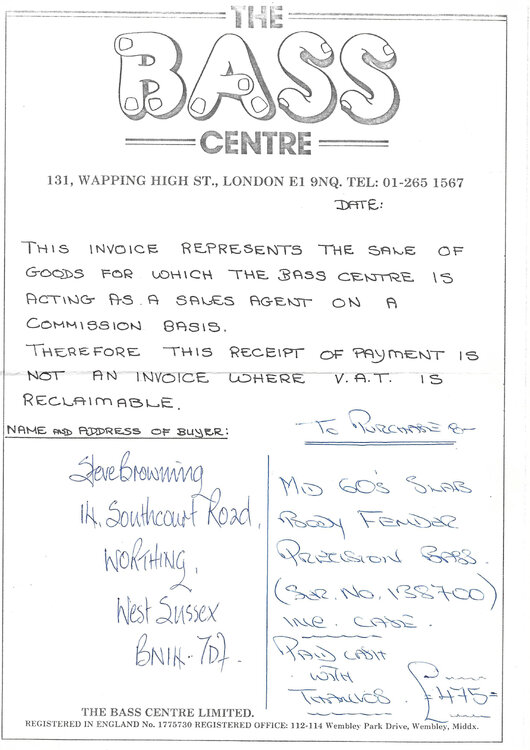 THE
BASS
CENTRE
131, WAPPING HIGH ST., LONDON E1 9NQ. TEL: 01-265 1567
DATE:
THIS INVOICE REPRESENTS THE SALE OF
GOODS FOR WHICH THE BASS CENTRE IS
ACTING AS A SALES AGENT ON A
COMMISSION BASIS.
THEREFORE THIS RECEIPT OF PAYMENT IS
NOT AN INVOICE WHERE V.A.T. IS
RECLAIMABLE.
NAME AND ADDRESS OF BUYER:
Steve Browning
14, Southcourt Road,
WORTHING,
West Sussex
BN14 - 7DF.
To PURCHASE :-
MID 60'S SLAB
BODY FENDER
PRECISION BASS.
(SER. NO. 138700)
INC. CASE.
PAID CASH
WITH
THANKS. £475=
THE BASS CENTRE LIMITED.
REGISTERED IN ENGLAND No. 1775730 REGISTERED OFFICE: 112-114 Wembley Park Drive, Wembley, Middx.